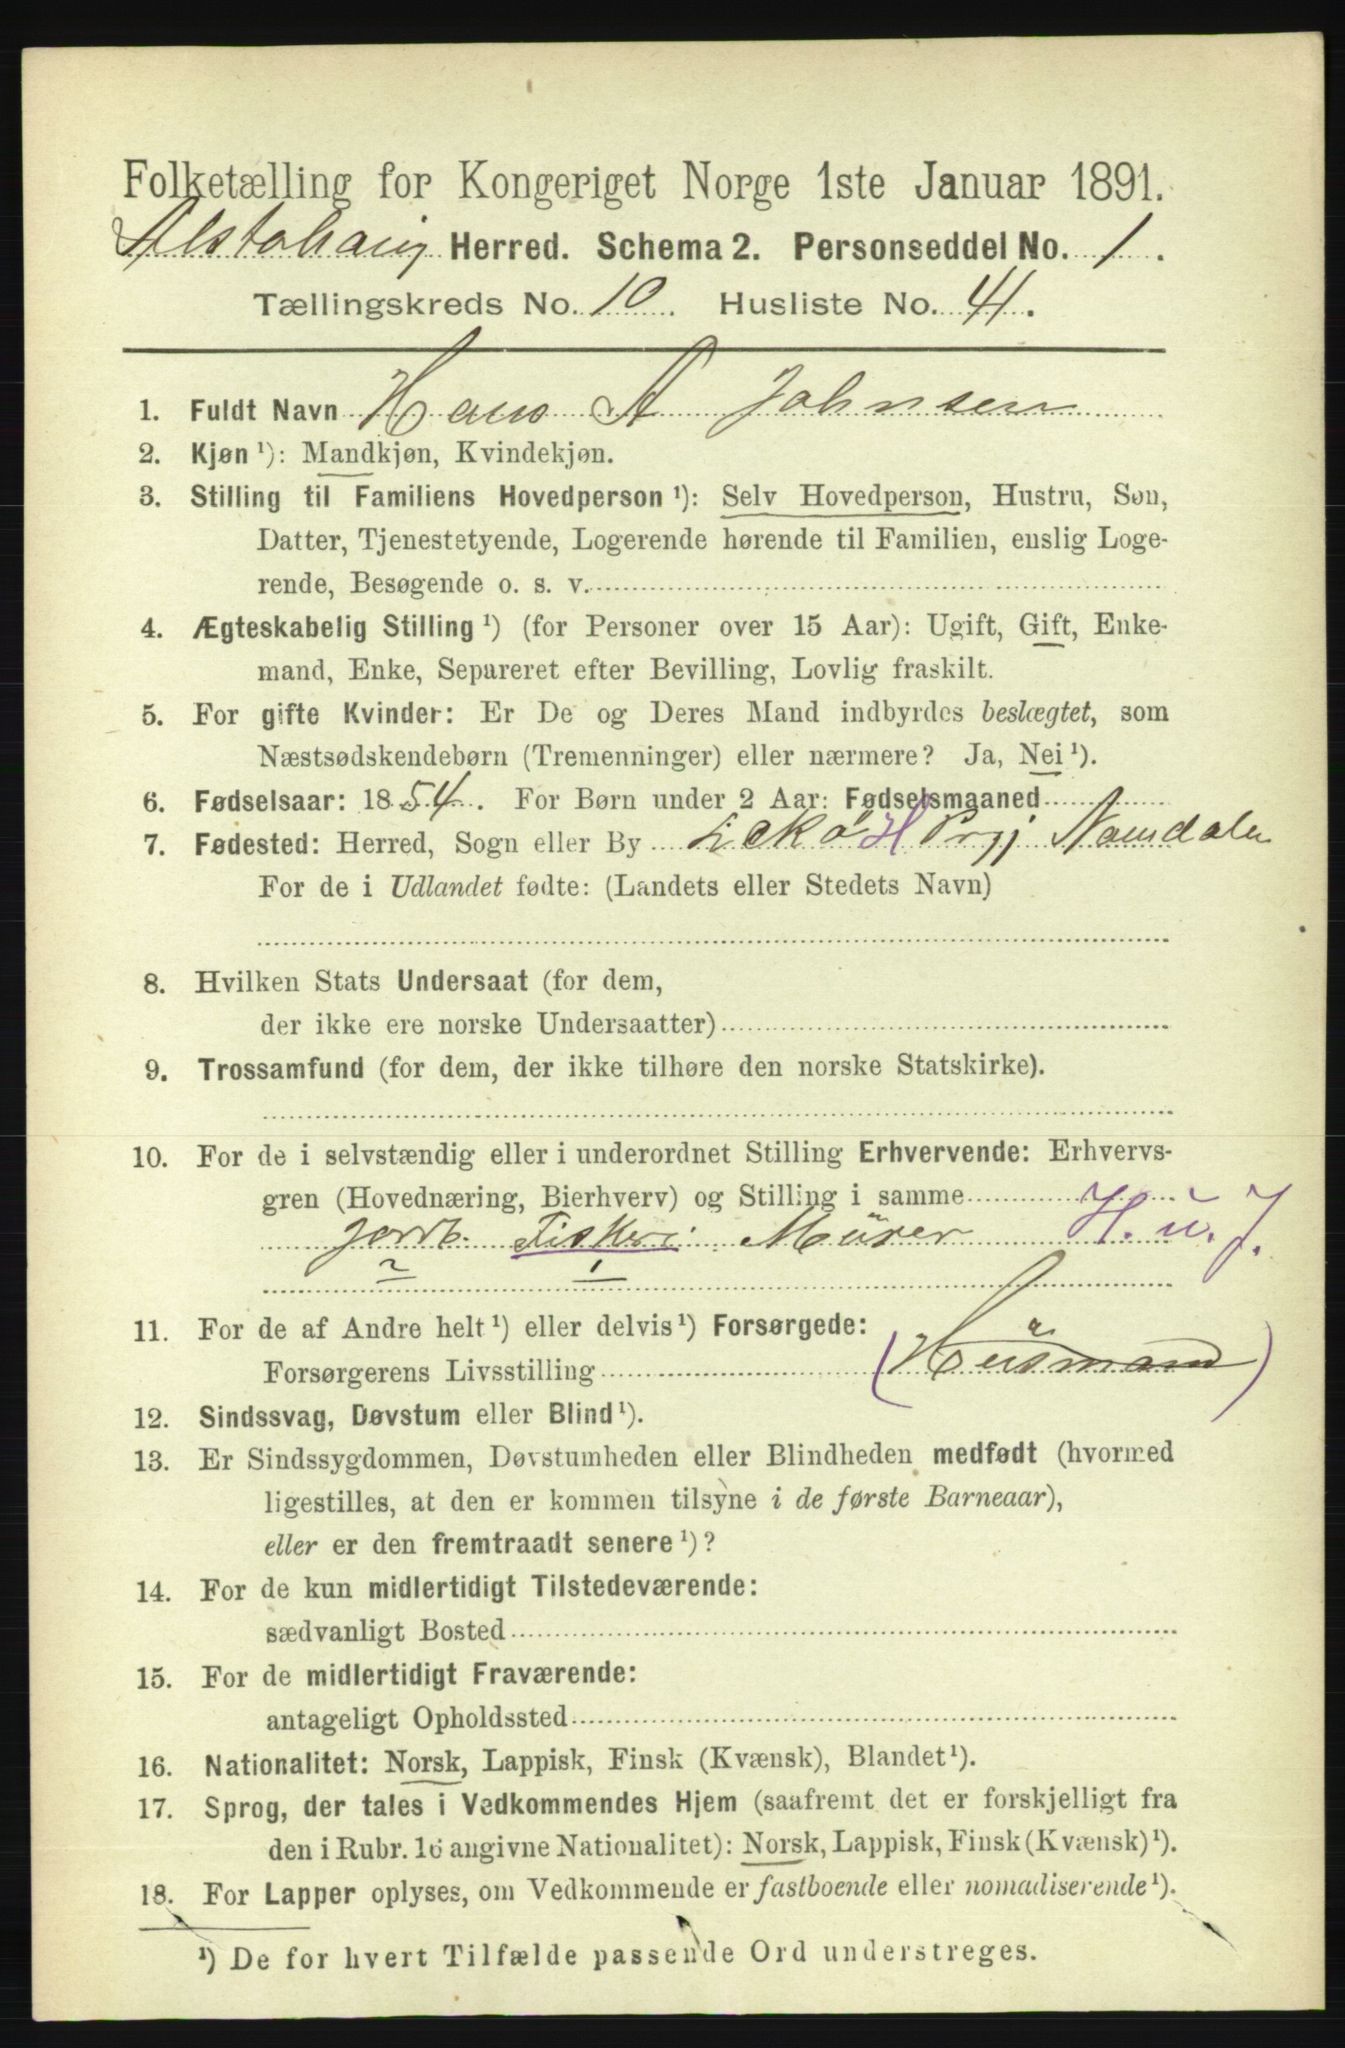 Folketælling for Kongeriget Norge 1ste Januar 1891.
Alstahaug Herred. Schema 2. Personseddel No. 1.
Tællingskreds No. 10. Husliste No. 41.
1. Fuldt Navn Hans A Johnsen
2. Kjøn ¹): Mandkjøn, Kvindekjøn.
3. Stilling til Familiens Hovedperson ¹): Selv Hovedperson, Hustru, Søn,
Datter, Tjenestetyende, Logerende hørende til Familien, enslig Loge-
rende, Besøgende o. s. v.
4. Ægteskabelig Stilling ¹) (for Personer over 15 Aar): Ugift, Gift, Enke-
mand, Enke, Separeret efter Bevilling, Lovlig fraskilt.
5. For gifte Kvinder: Er De og Deres Mand indbyrdes beslægtet, som
Næstsødskendebørn (Tremenninger) eller nærmere? Ja, Nei ¹).
6. Fødselsaar: 1854. For Børn under 2 Aar: Fødselsmaaned
7. Fødested: Herred, Sogn eller By Lekø H Prgj Namdalen
For de i Udlandet fødte: (Landets eller Stedets Navn)
8. Hvilken Stats Undersaat (for dem,
der ikke ere norske Undersaatter)
9. Trossamfund (for dem, der ikke tilhøre den norske Statskirke).
10. For de i selvstændig eller i underordnet Stilling Erhvervende: Erhvervs-
gren (Hovednæring, Bierhverv) og Stilling i samme
Jordb. Fiskeri Mürer H. u. J.
2 1
11. For de af Andre helt ¹) eller delvis ¹) Forsørgede:
Forsørgerens Livsstilling (Hüsmand)
12. Sindssvag, Døvstum eller Blind ¹).
13. Er Sindssygdommen, Døvstumheden eller Blindheden medfødt (hvormed
ligestilles, at den er kommen tilsyne i de første Barneaar),
eller er den fremtraadt senere ¹)?
14. For de kun midlertidigt Tilstedeværende:
sædvanligt Bosted
15. For de midlertidigt Fraværende:
antageligt Opholdssted
16. Nationalitet: Norsk, Lappisk, Finsk (Kvænsk), Blandet ¹).
17. Sprog, der tales i Vedkommendes Hjem (saafremt det er forskjelligt fra
den i Rubr. 16 angivne Nationalitet): Norsk, Lappisk, Finsk (Kvænsk) ¹).
18. For Lapper oplyses, om Vedkommende er fastboende eller nomadiserende ¹).
¹) De for hvert Tilfælde passende Ord understreges.